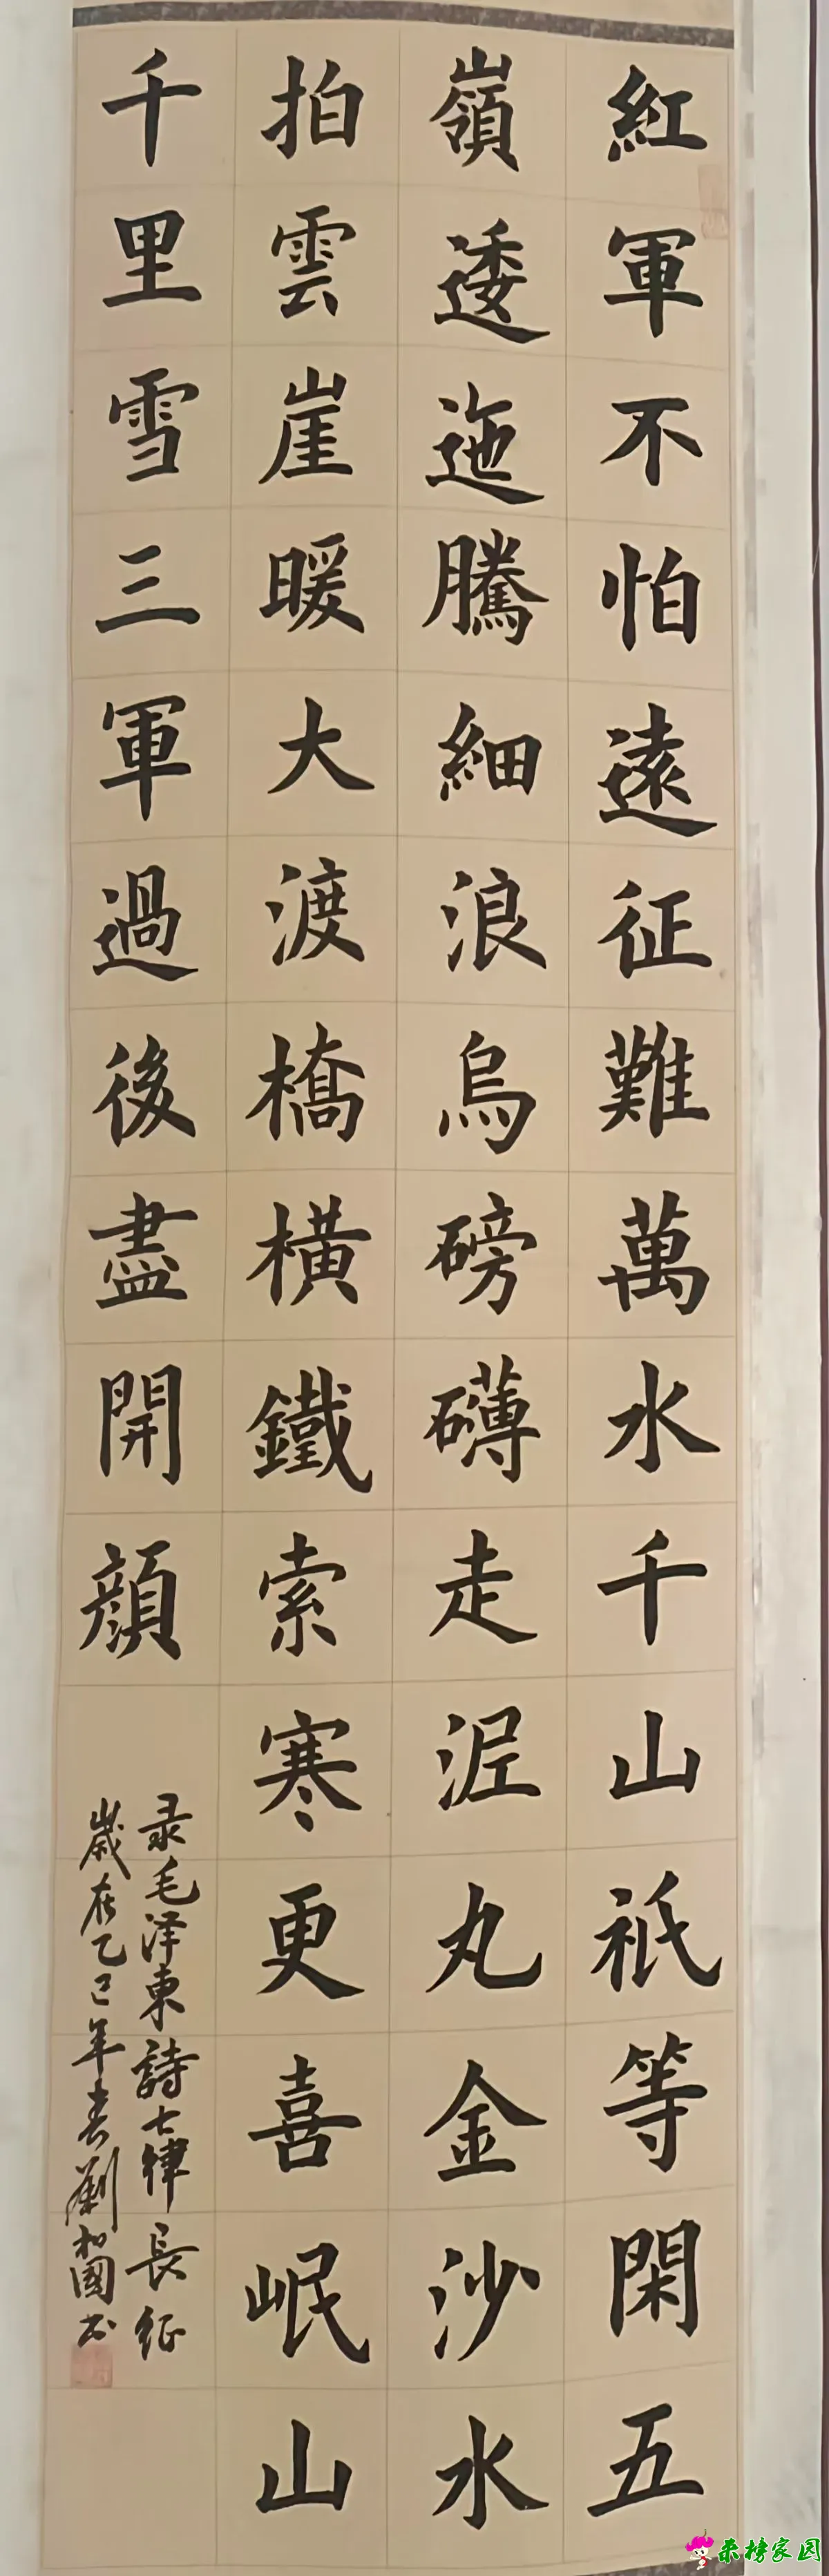 紅軍不怕遠征難萬水千山祇等閑五
嶺逶迤騰細浪烏磅礴走泥丸金沙水
拍雲崖暖大渡橋橫鐵索寒更喜岷山
千里雪三軍過後盡開顔
录毛泽東詩七律長征
歲在乙巳年春劉和國书
乘榜家园